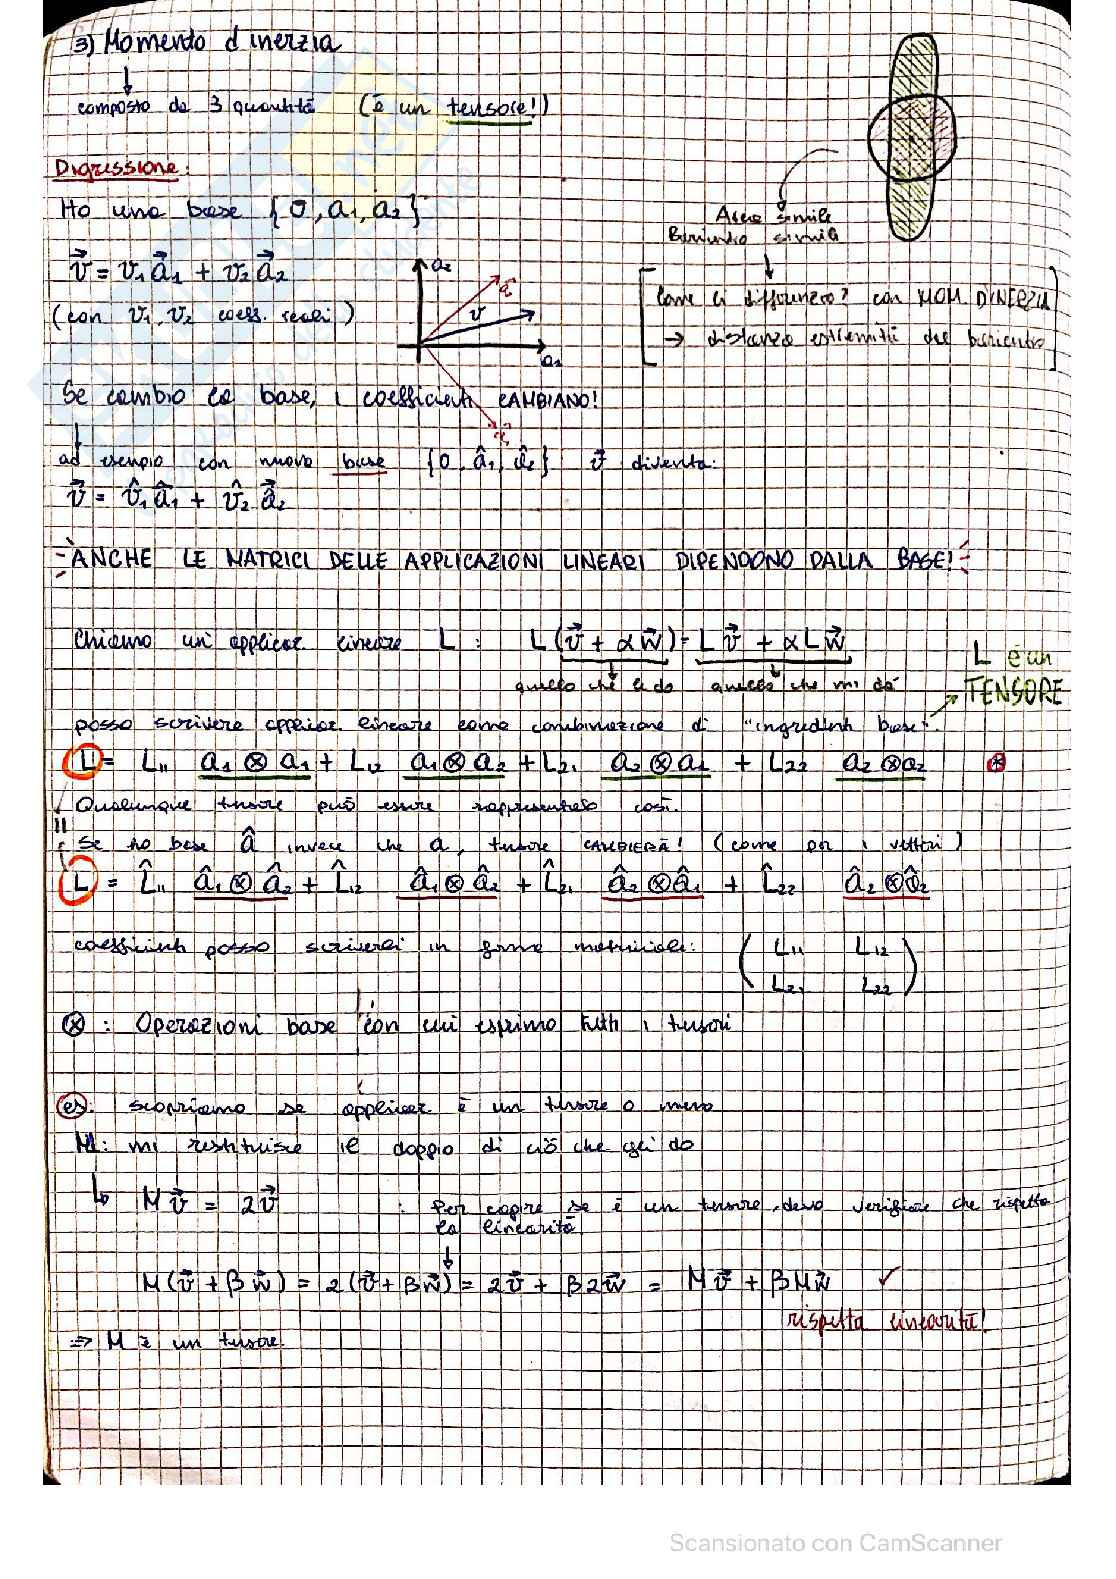 3) Momento d'inerzia
↓
composto da 3 quantità (è un tensore!)
Digressione:
Ho una base {0, a₁, a₂}
Area simile
Baricentro simile
v⃗ = v₁a⃗₁ + v₂a⃗₂
a₂
v
a₁
(con v₁, v₂ coeff. reali)
[Come li differenzio? con MOM. D'INERZIA
→ distanza estremità dal baricentro]
Se cambio la base, i coefficienti CAMBIANO!
ad esempio con nuova base {0, â₁, â₂} v⃗ diventa:
v⃗ = v̂₁â₁ + v̂₂â₂
ANCHE LE MATRICI DELLE APPLICAZIONI LINEARI DIPENDONO DALLA BASE!
Chiamo un'applicaz. lineare L : L(v⃗ + αw⃗) = Lv⃗ + αLw⃗
quello che le do quello che mi dà
L è un
TENSORE
posso scrivere applicaz. lineare come combinazione di "ingredienti base":
L = L₁₁ a₁⊗a₁ + L₁₂ a₁⊗a₂ + L₂₁ a₂⊗a₁ + L₂₂ a₂⊗a₂ ⊛
Qualunque tensore può essere rappresentato così.
Se ho base â invece che a, tensore CAMBIERÀ! (come per i vettori)
L = L̂₁₁ â₁⊗â₂ + L̂₁₂ â₁⊗â₂ + L̂₂₁ â₂⊗â₁ + L̂₂₂ â₂⊗â₂
coefficienti posso scriverli in forma matriciale: (L₁₁ L₁₂
L₂₁ L₂₂)
⊗ : Operazioni base con cui esprimo tutti i tensori
es: scopriamo se applicaz è un tensore o meno
M: mi restituisce il doppio di ciò che gli do
↳ Mv⃗ = 2v⃗ : Per capire se è un tensore, devo verificare che rispetta
la linearità
M(v⃗ + βw⃗) = 2(v⃗ + βw⃗) = 2v⃗ + β2w⃗ = Mv⃗ + βMw⃗ ✓
rispetta linearità!
⇒ M è un tensore.
Scansionato con CamScanner